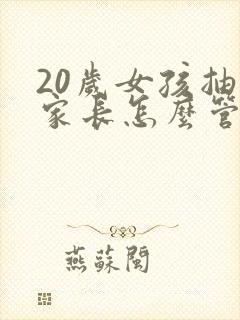 20歲女孩抽
家長怎麼管
燕蘇閩